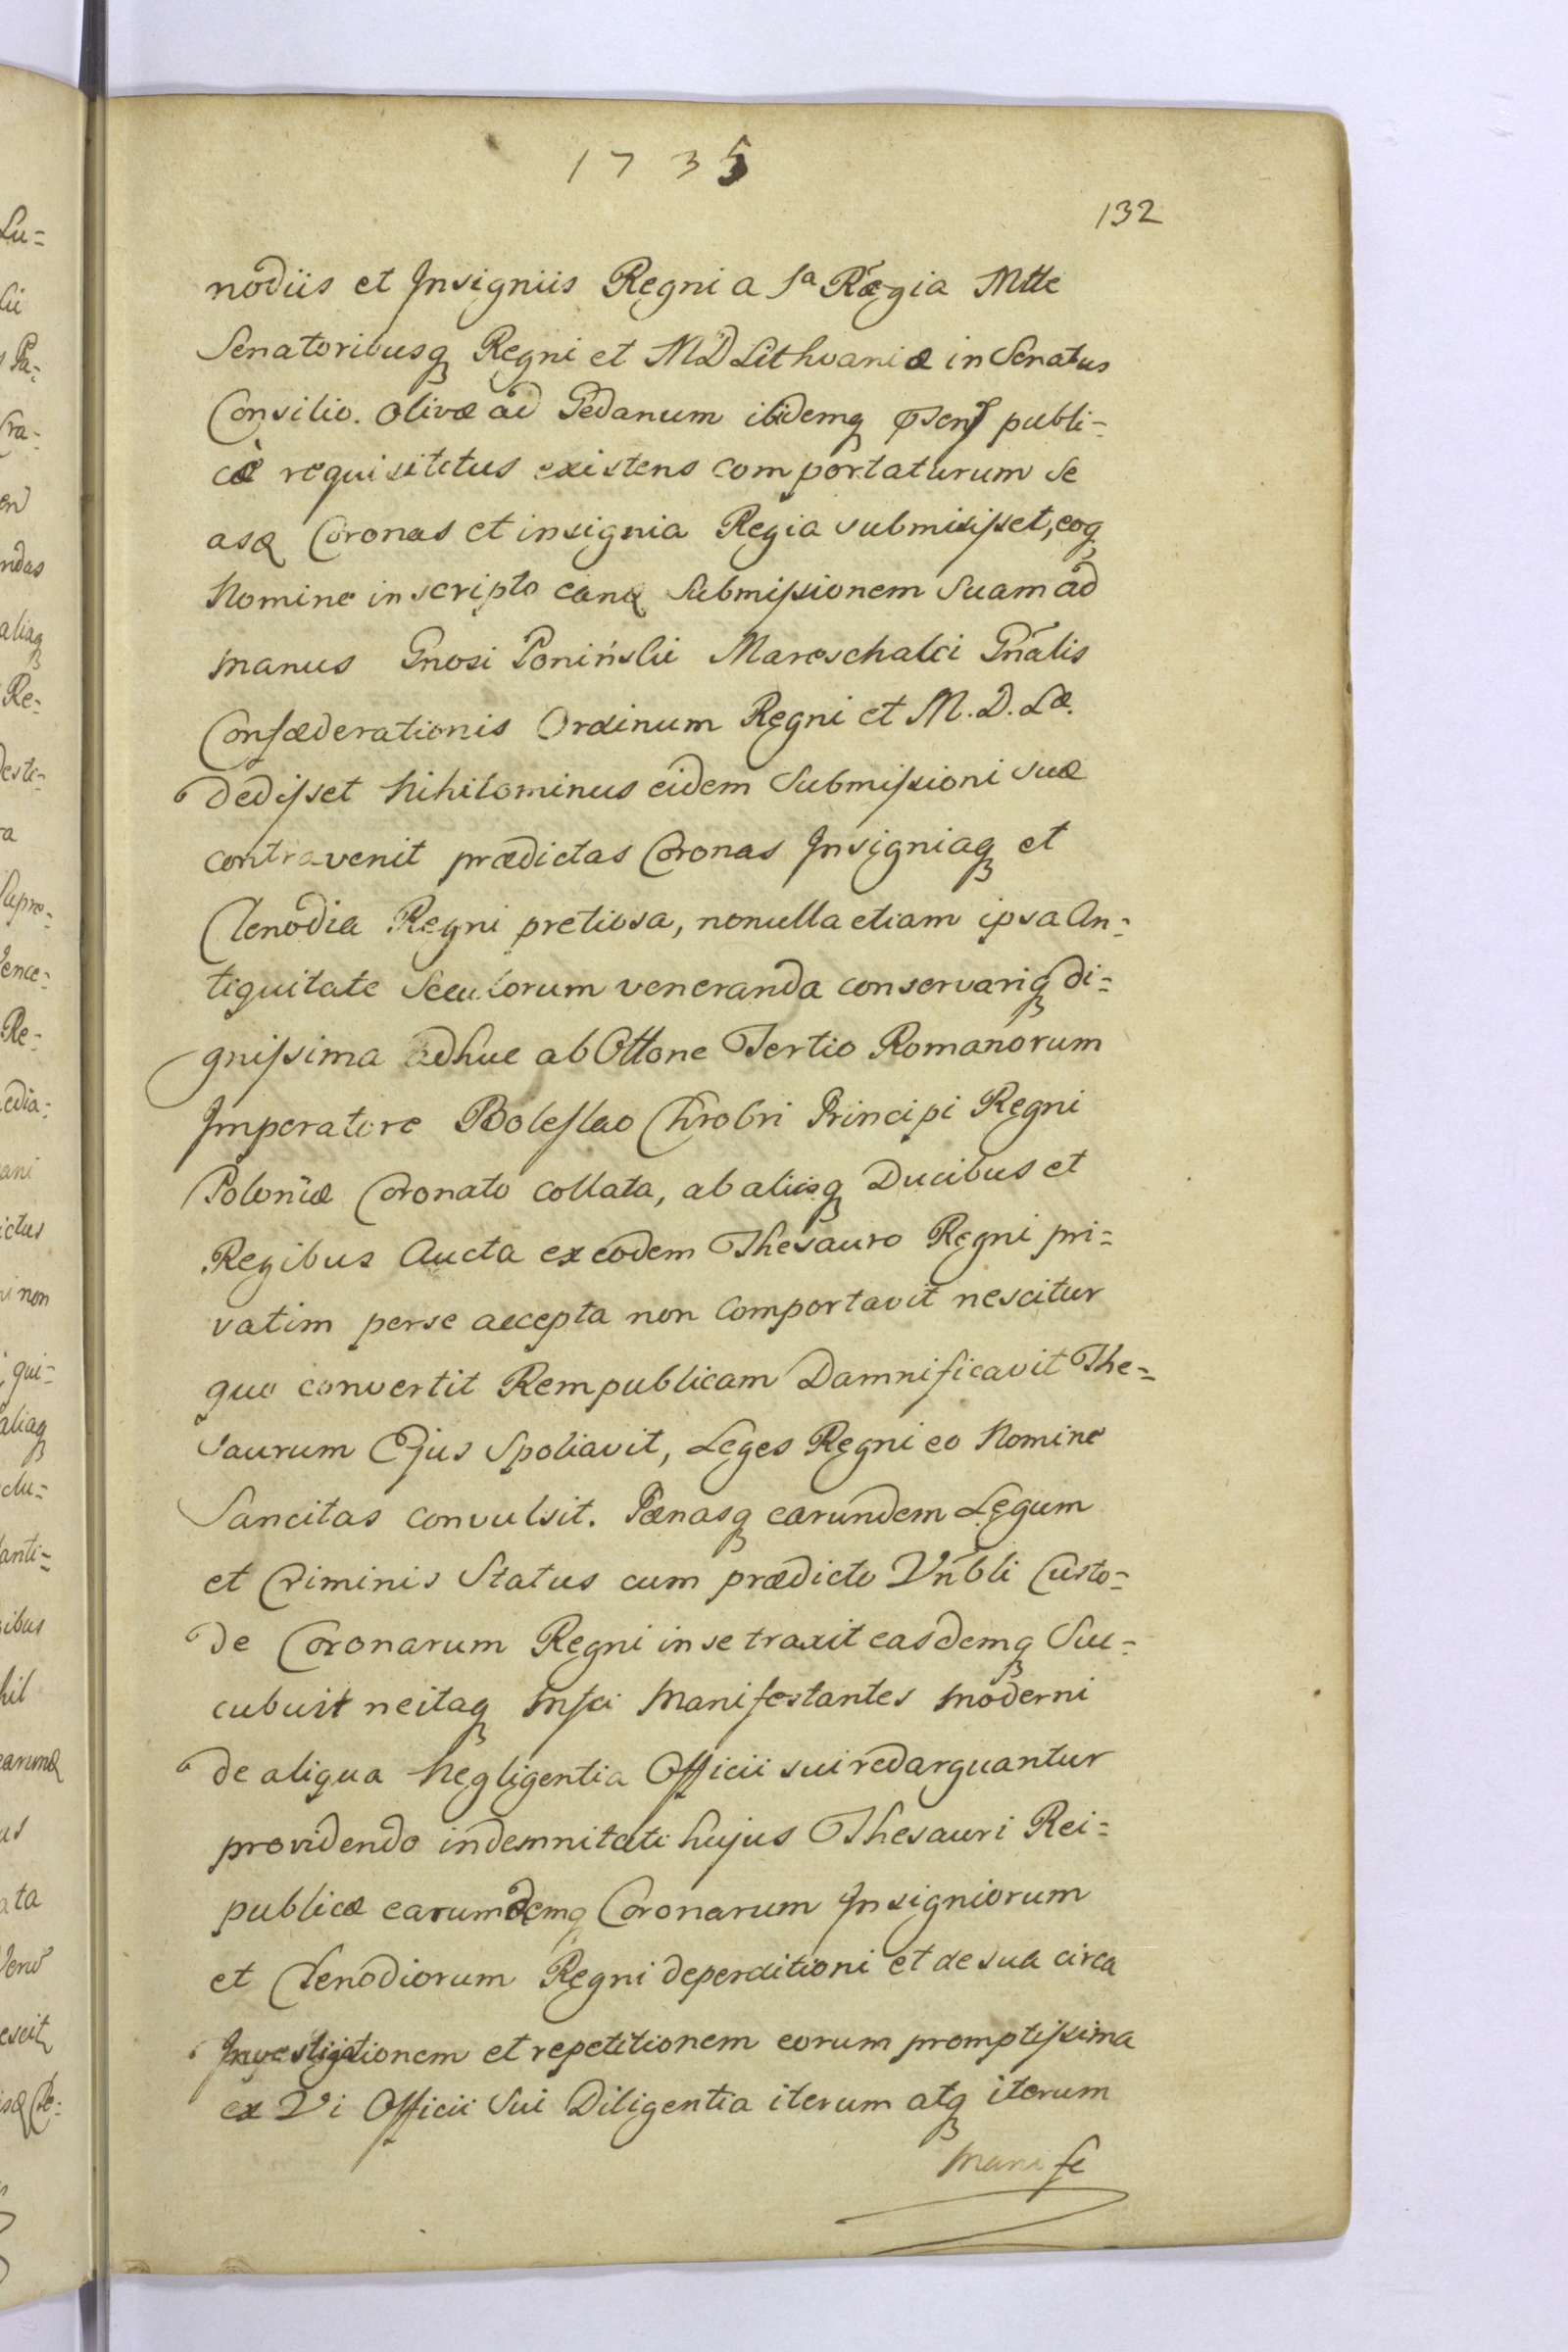 1735
132
nodiis et Insigniis Regni a Sa Regia Mtte
Senatoribusq Regni et M D Lithvaniæ in Senatus
Consilio. Olivæ ad Gedanum ibidemq publi=
cè requisititus existens comportaturum se
asq Coronas et insignia Regia submisisset, eoq
Nomine inscripto eanq Submissionem Suam ad
manus Gnosi Ponińskii Mareschalci Gnalis
Confæderationis Ordinum Regni et M. D. Læ.
dedisset Nihilominus eidem Submissioni suæ
contravenit prædictas Coronas Insigniaq et
Clenodia Regni pretiosa, nonulla etiam ipsa An=
tiquitate Seculorum veneranda conservariq di=
gnissima adhuc ab Ottone Tertio Romanorum
Imperatore Boleslao Chrobri Principi Regni
Poloniæ Coronato collata, ab aliisq Ducibus et
Regibus Aucta ex eodem Thesauro Regni pri=
vatim perse accepta non comportavit nescitur
quo convertit Rempublicam Damnificavit The=
saurum Ejus Spoliavit, Leges Regni eo Nomine
Sancitas convulsit. Pænasq earundem Legum
et Criminis Status cum prædicto Vnbli Custo=
de Coronarum Regni in se traxit easdemq Suc=
cubuit neitaq Mfci Manifestantes moderni
de aliqua Negligentia Officii sui redarguantur
providendo indemnitati hujus Thesauri Rei=
publicæ earumdemq Coronarum Insigniorum
et Clenodiorum Regni deperditioni et de sua circa
Investigationem et repetitionem eorum promptissima
ex Vi Officii Sui Diligentia iterum atq iterum
Manife
Lu=
Pa=
cra=
en
ndas
aliaq
Re=
deste=
ra
Supre=
Re=
edia=
ani
ictus
non
qui=
aliaq
clu=
anti=
ibus
hil
earumq
as
ata
escit